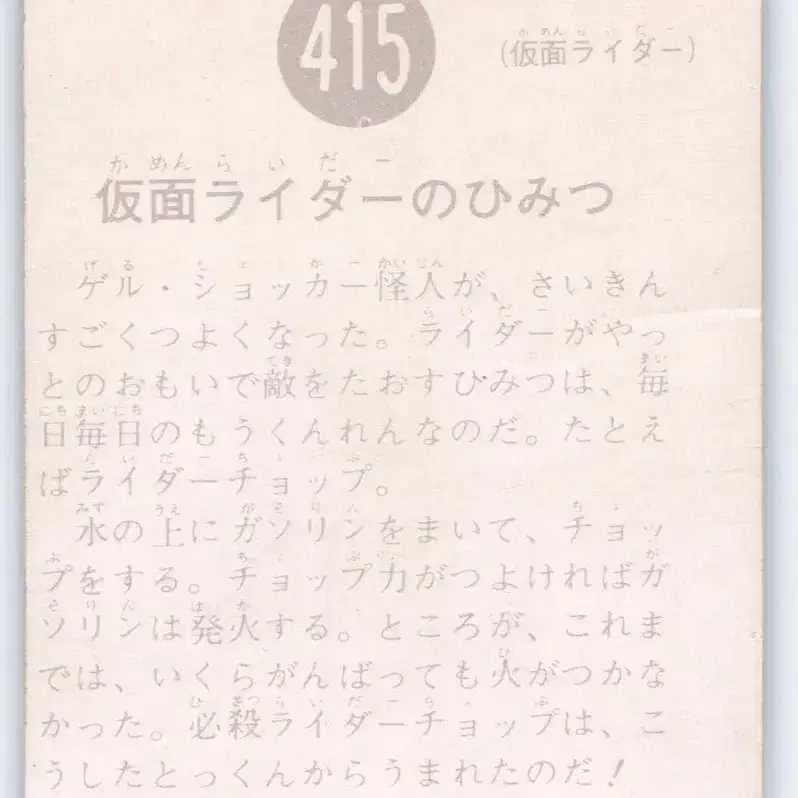 415
(仮面ライダー)
仮面ライダーのひみつ
ゲル・ショッカー怪人が、さいきん
すごくつよくなった。ライダーがやっ
とのおもいで敵をたおすひみつは、毎
日毎日のもうくんれんなのだ。たとえ
ばライダーチョップ。
水の上にガソリンをまいて、チョッ
プをする。チョップ力がつよければガ
ソリンは発火する。ところが、これま
では、いくらがんばっても火がつかな
かった。必殺ライダーチョップは、こ
うしたとっくんからうまれたのだ!